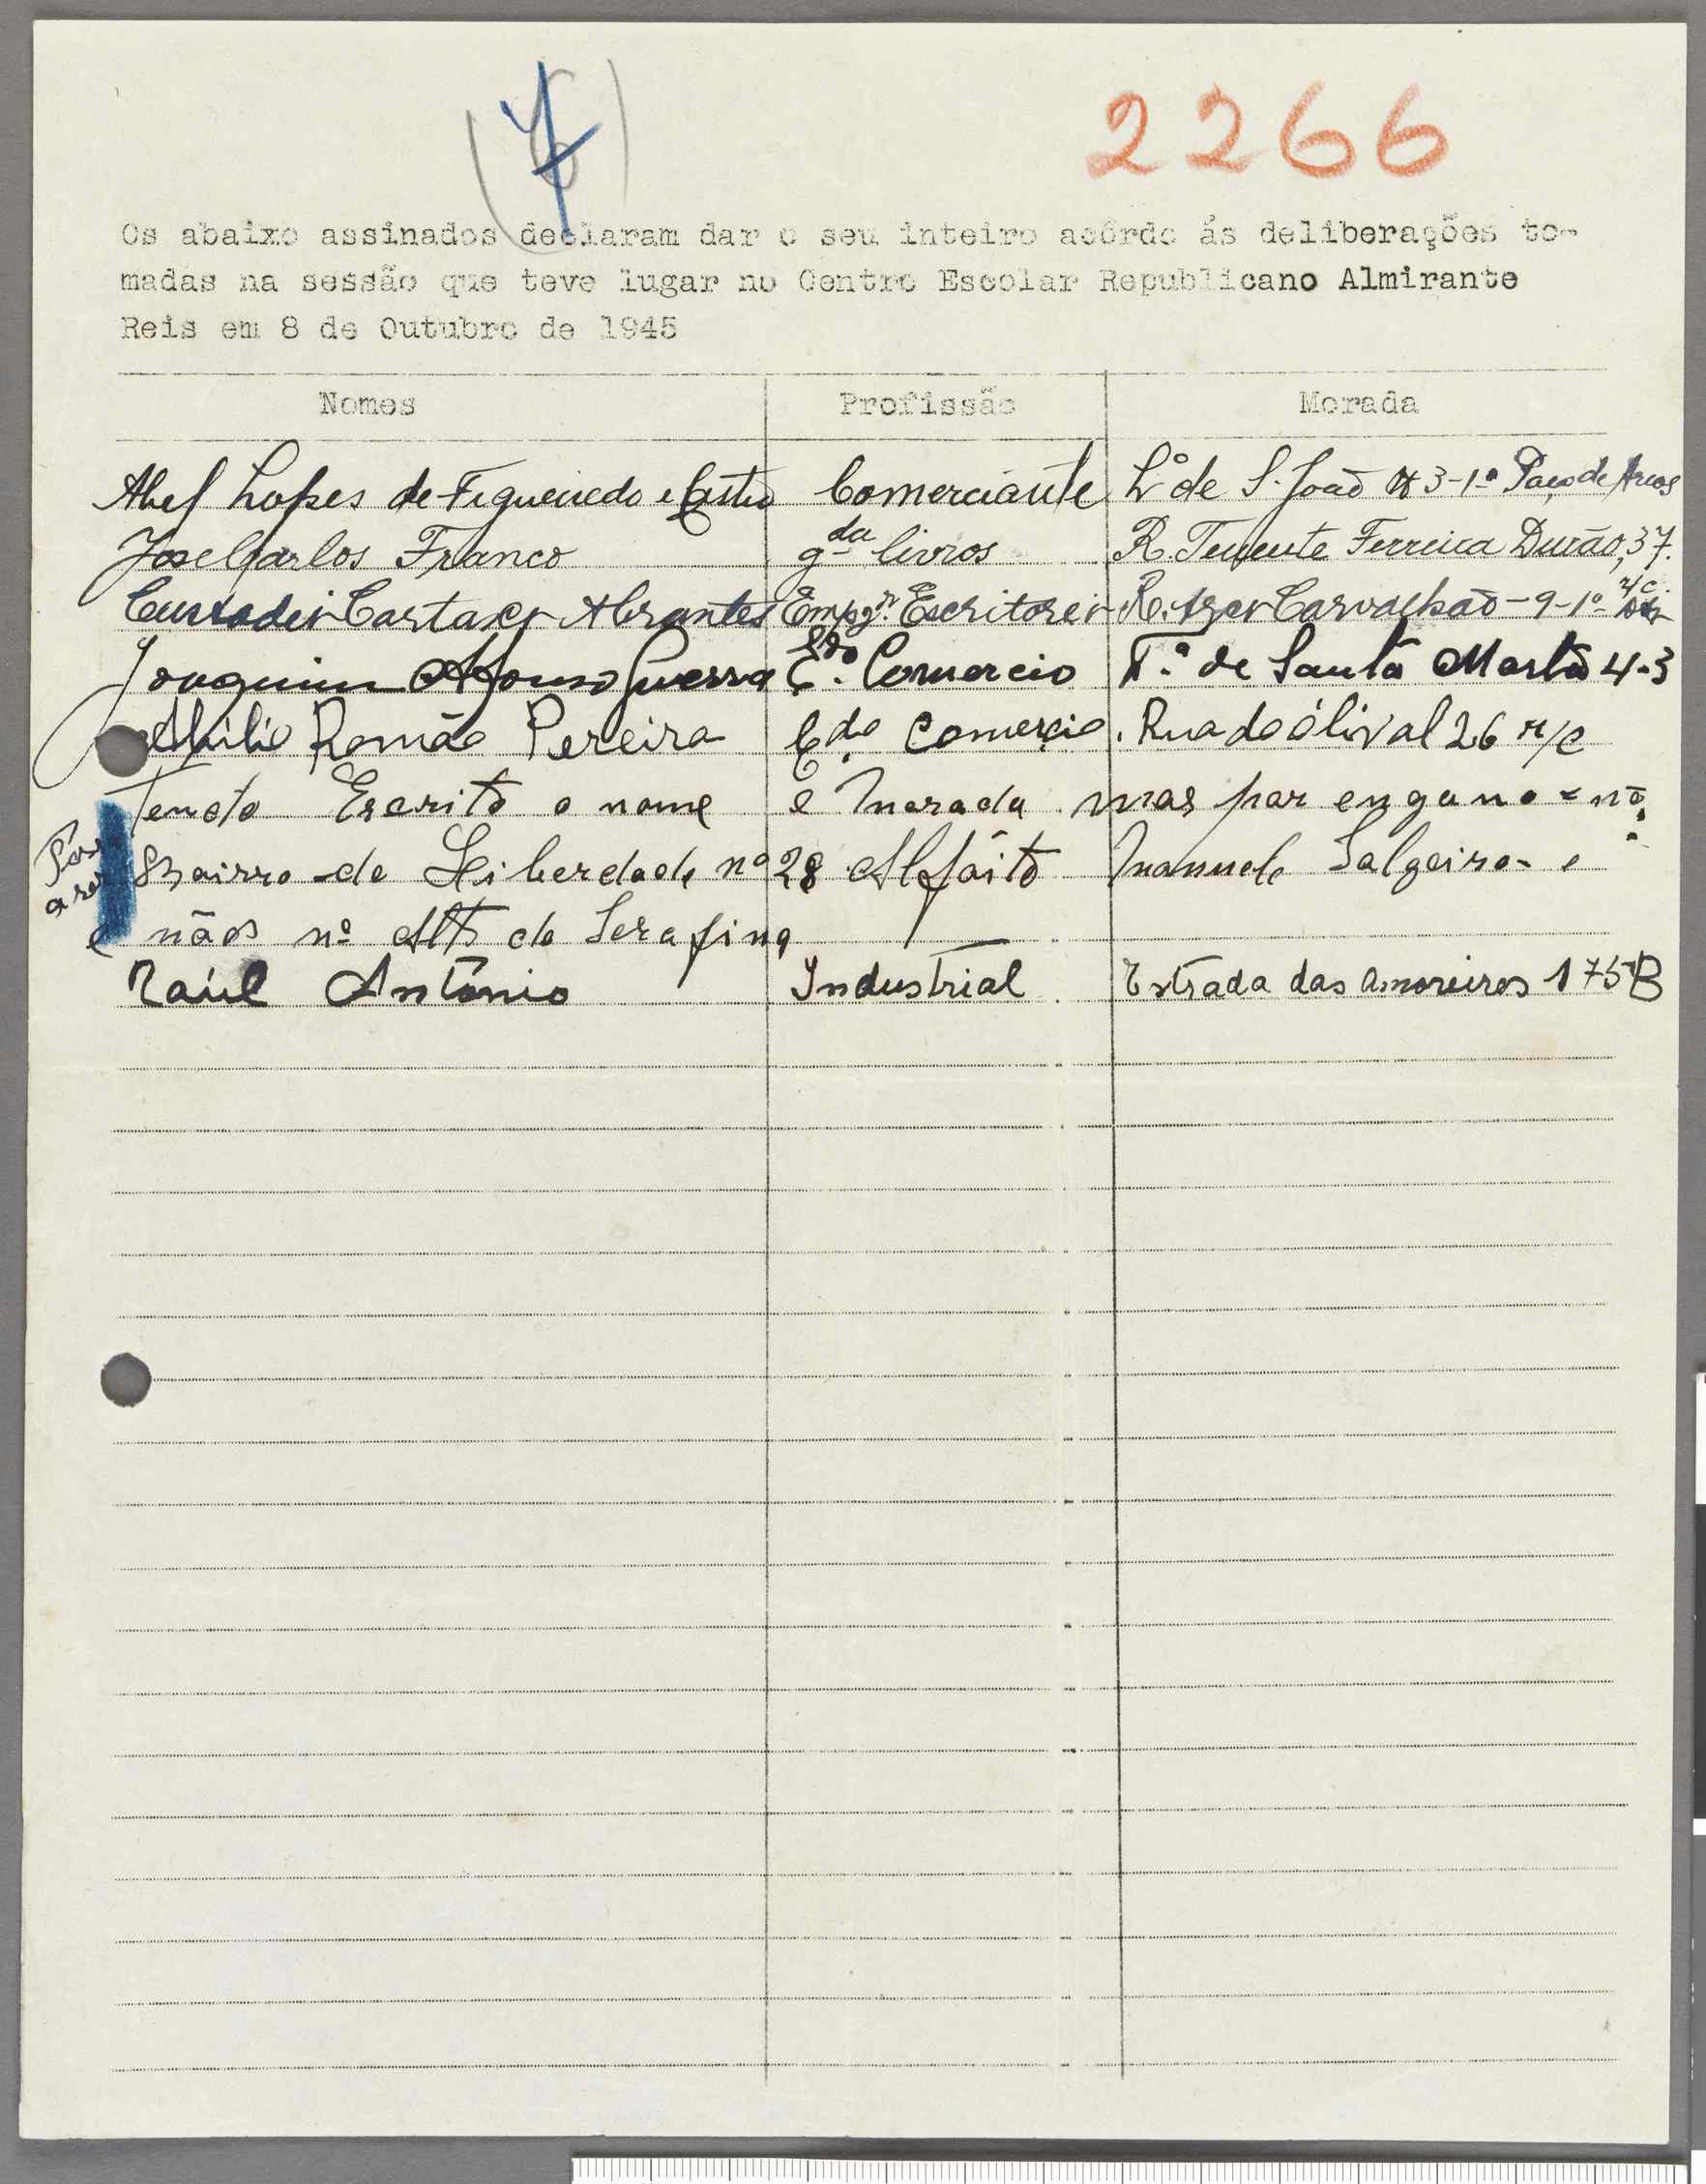 2266
Os abaixo assinados declaram dar o seu inteiro acôrdo ás deliberações to-
madas na sessão que teve lugar no Centro Escolar Republicano Almirante
Reis em 8 de Outubro de 1945
Nomes Profissão Morada
Abel Lopes de Figueiredo e Castro Comerciante L.º de S. João 3-1º Paço de Arcos
José Carlos Franco gda livros R. Tenente Ferreira Durão, 37.
Cartaxo Abrantes Escritorio R. Carvalhão - 9-1º
Joaquim Afonso Guerra E.do Comercio T.ª de Santa Marta 4-3
Abilio Romão Pereira E.do Comercio. Rua do ólival 26 r/c
Tendo Escrito o nome e morada mas por engano
Bairro da Liberdade nº 28 Manuel Salgeiro e
e não nº Alto do Serafina
Raúl António Industrial Estrada das Amoreiras 175 B